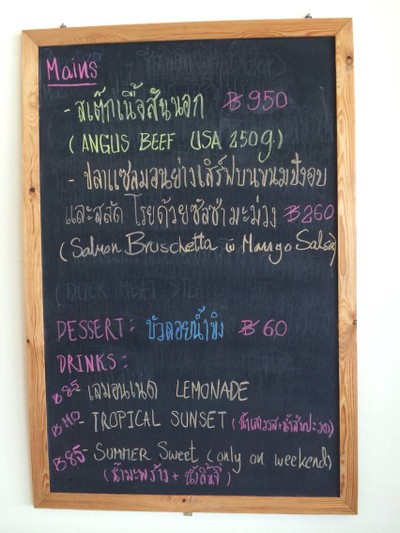 Mains
- สเต๊กเนื้อสันนอก ฿950
(ANGUS BEEF USA 250g.)
- ปลาแซลมอนย่างเสิร์ฟบนขนมปังอบ
และสลัด โรยด้วยซัลซ่ามะม่วง ฿260
(Salmon Bruschetta w Mango Salsa)
(DUCK MEAT
DESSERT: บัวลอยน้ำขิง ฿60
DRINKS:
฿85 เลมอนเนด LEMONADE
฿110 - TROPICAL SUNSET (น้ำเสาวรส+น้ำสับปะรด)
฿85 - SUMMER Sweet (only on weekend)
(น้ำมะพร้าว + น้ำลิ้นจี่)